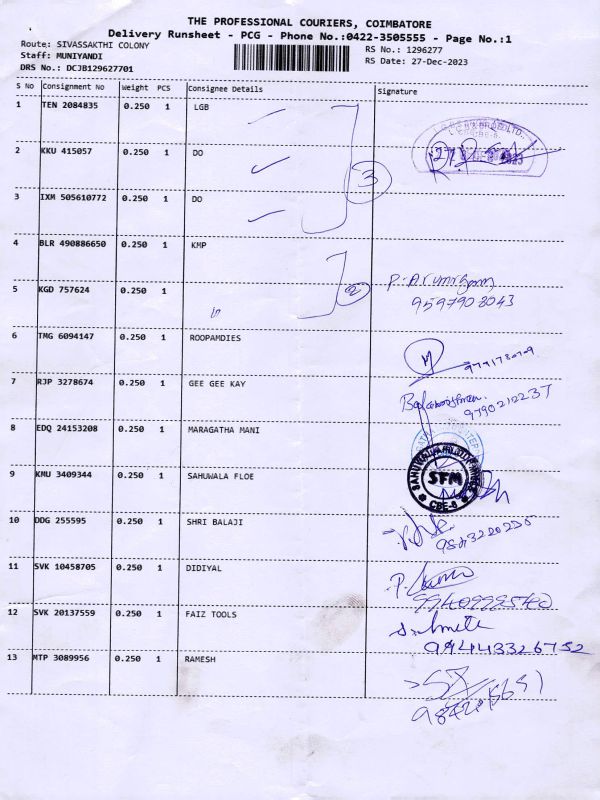 THE PROFESSIONAL COURIERS, COIMBATORE
Delivery Runsheet - PCG - Phone No.:0422-3505555 - Page No.:1
Route: SIVASSAKTHI COLONY RS No.: 1296277
Staff: MUNIYANDI RS Date: 27-Dec-2023
DRS No.: DCJB129627701
S No Consignment No Weight PCS Consignee Details Signature
1 TEN 2084835 0.250 1 LGB
2 KKU 415057 0.250 1 DO
3 IXM 505610772 0.250 1 DO
3
4 BLR 490886650 0.250 1 KMP
5 KGD 757624 0.250 1
2
9597908043
6 TMG 6094147 0.250 1 ROOPAMDIES
7 RJP 3278674 0.250 1 GEE GEE KAY
9790212237
8 EDQ 24153208 0.250 1 MARAGATHA MANI
9 KMU 3409344 0.250 1 SAHUWALA FLOE
SFM
CBE-6
10 DDG 255595 0.250 1 SHRI BALAJI
11 SVK 10458705 0.250 1 DIDIYAL
12 SVK 20137559 0.250 1 FAIZ TOOLS
13 MTP 3089956 0.250 1 RAMESH